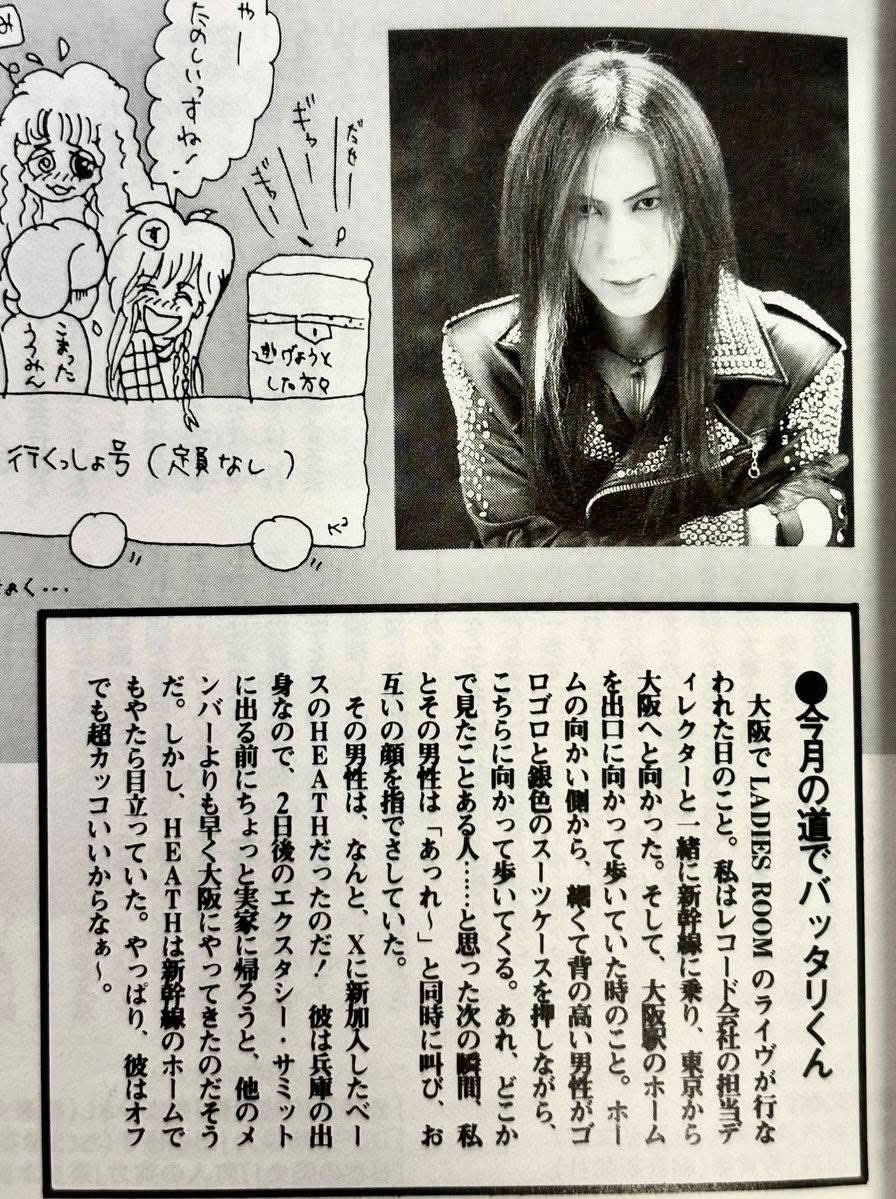 や
ー
たのしいっすね!
お
す
だぁー
ギャー
ギャー
こまった
うろみん
逃げようと
した方々
行くっしょ号(定員なし)
K²
●今月の道でバッタリくん
大阪でLADIES ROOMのライヴが行な
われた日のこと。私はレコード会社の担当デ
ィレクターと一緒に新幹線に乗り、東京から
大阪へと向かった。そして、大阪駅のホーム
を出口に向かって歩いていた時のこと。ホー
ムの向かい側から、細くて背の高い男性がゴ
ロゴロと銀色のスーツケースを押しながら、
こちらに向かって歩いてくる。あれ、どこか
で見たことある人……と思った次の瞬間、私
とその男性は「あっれ〜」と同時に叫び、お
互いの顔を指でさしていた。
その男性は、なんと、Xに新加入したベー
スのHEATHだったのだ! 彼は兵庫の出
身なので、2日後のエクスタシー・サミット
に出る前にちょっと実家に帰ろうと、他のメ
ンバーよりも早く大阪にやってきたのだそう
だ。しかし、HEATHは新幹線のホームで
もやたら目立っていた。やっぱり、彼はオフ
でも超カッコいいからなぁ〜。